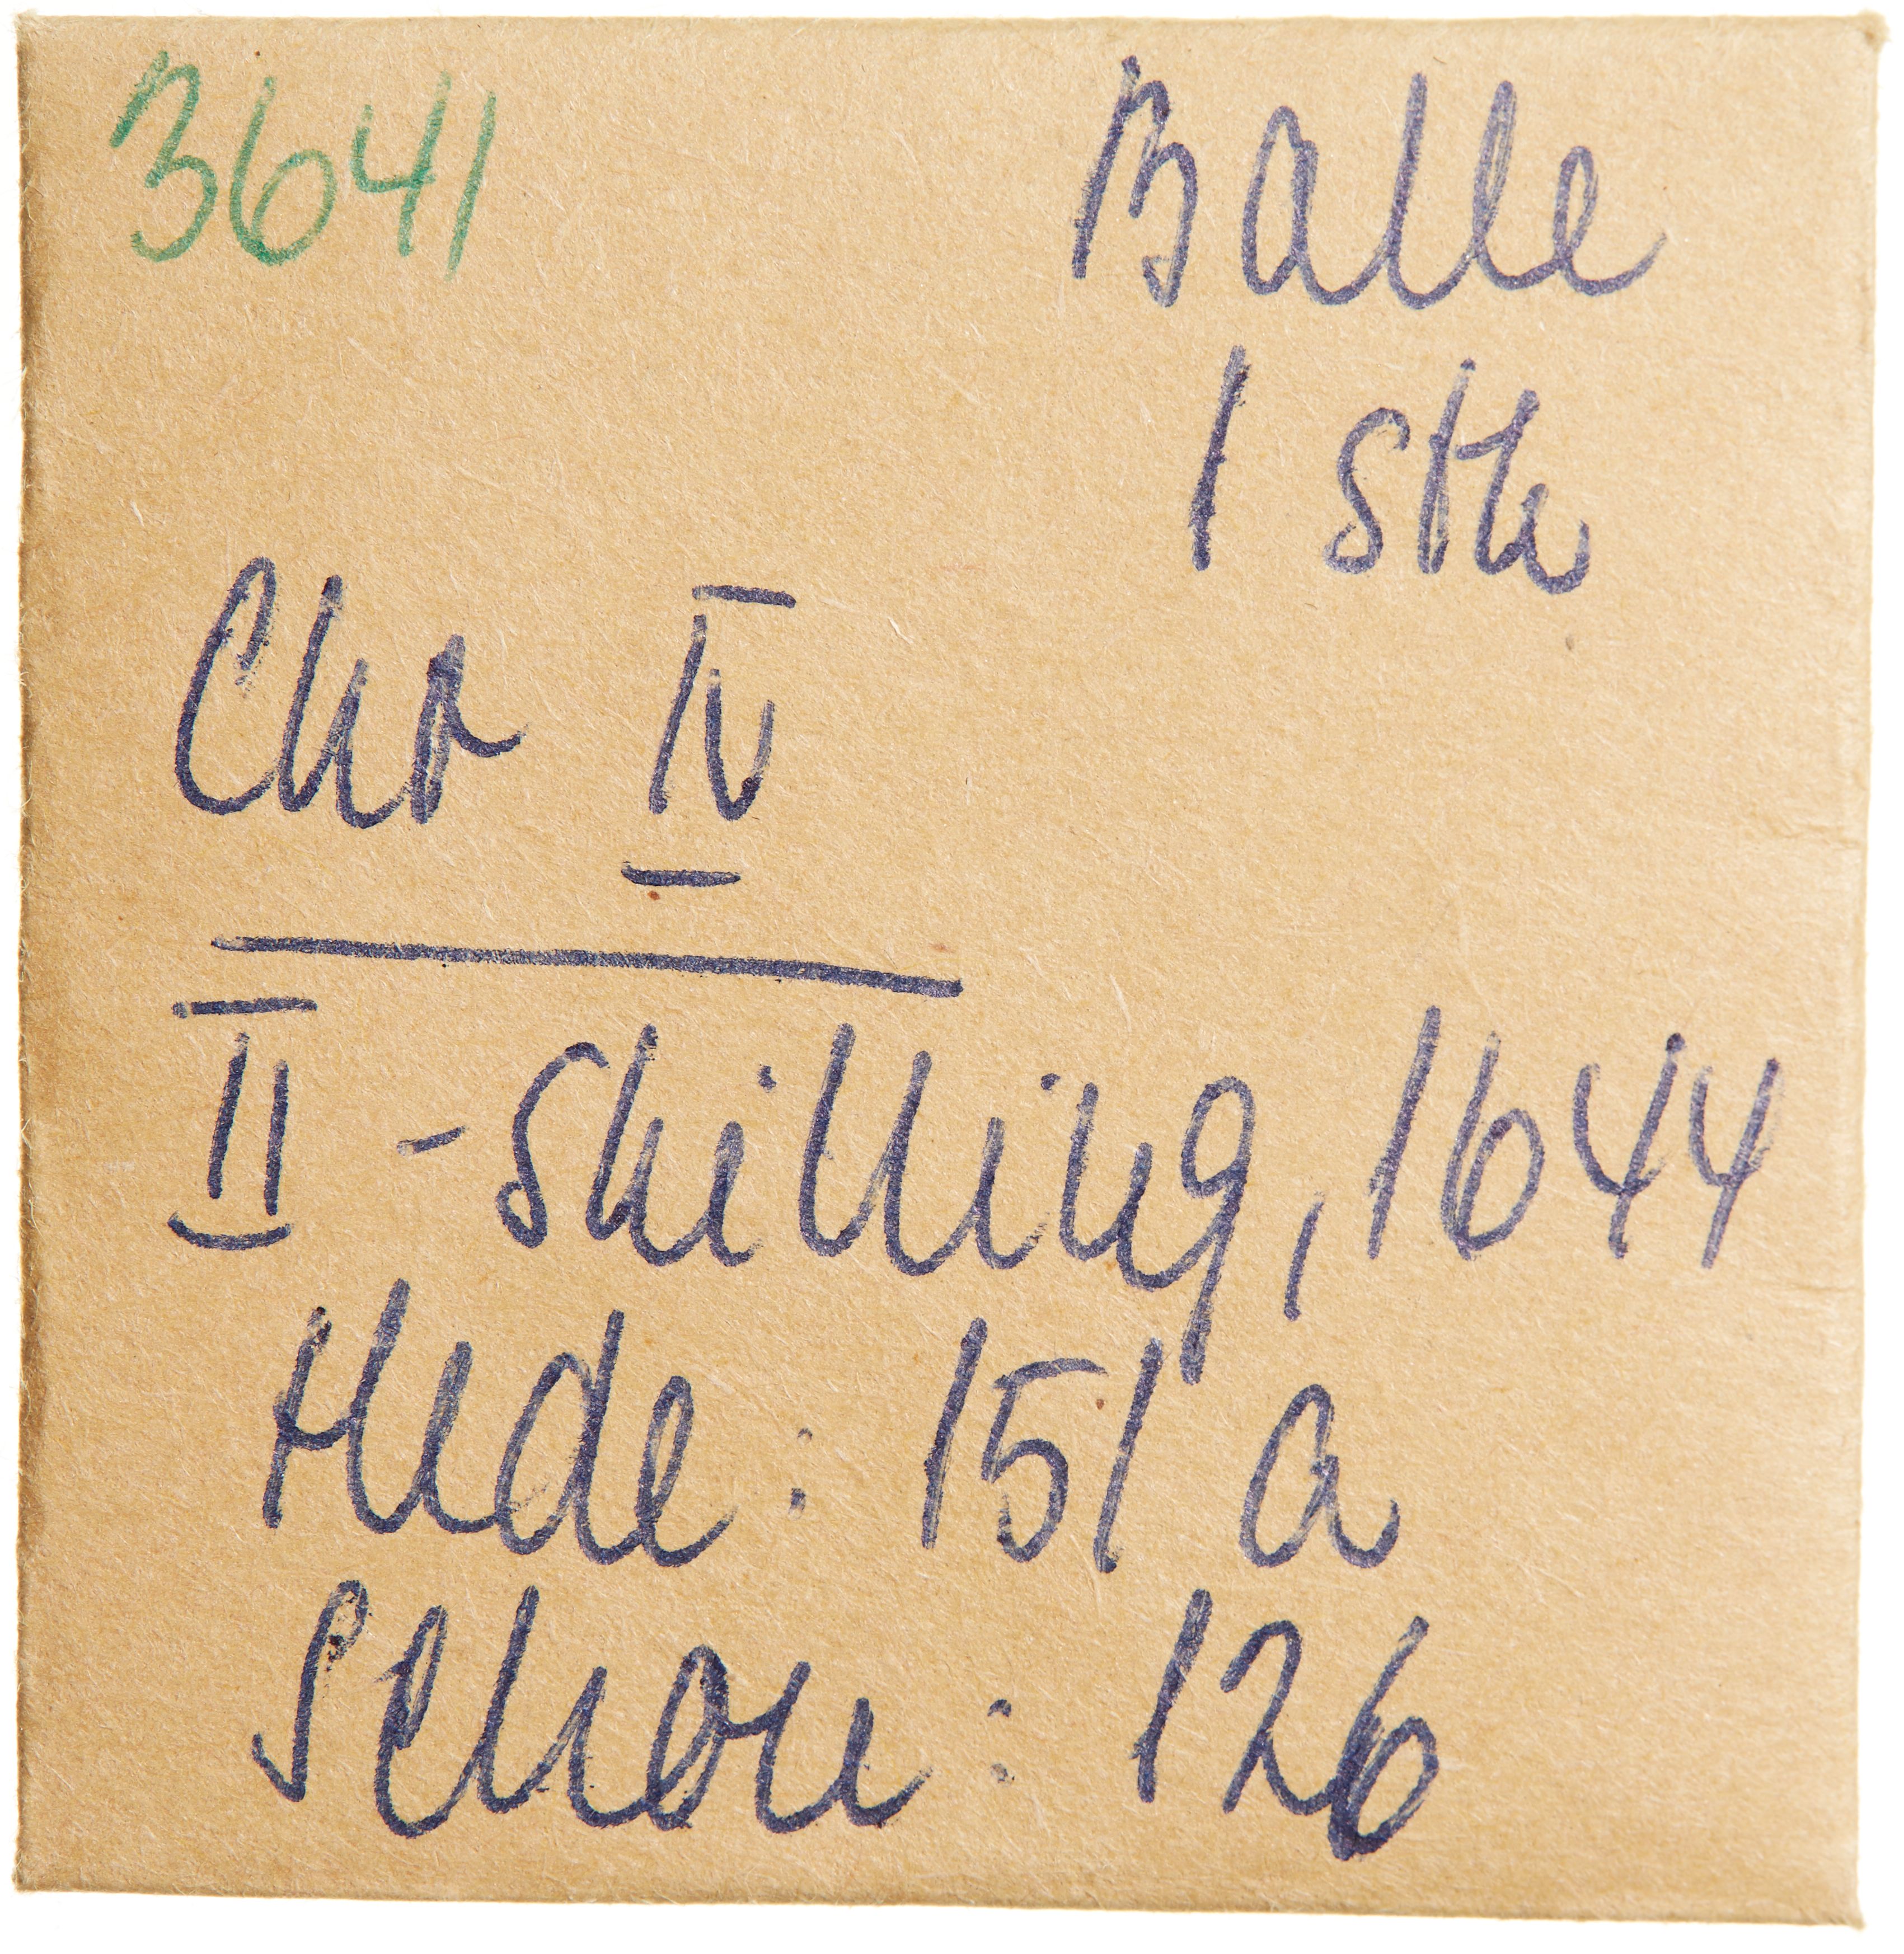 3641
Balle
1 stk
Chr IV
II - skilling, 1644
Hede : 151 a
Schou : 126